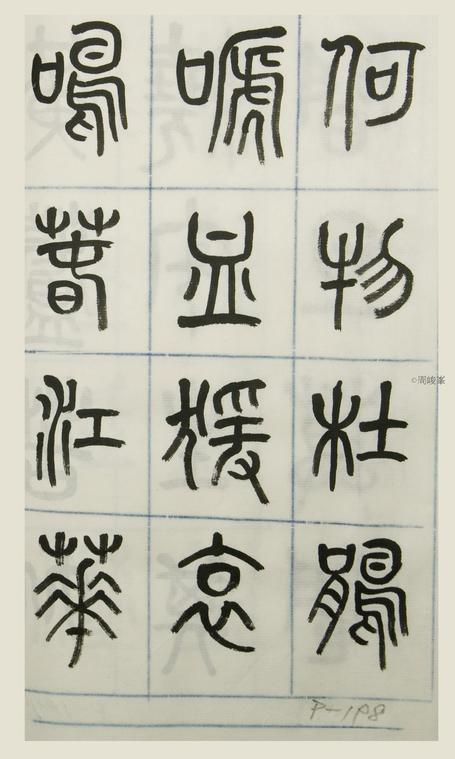 何物杜鵑
嗁血猨哀
鳴春江華
©周峻峯
P-198